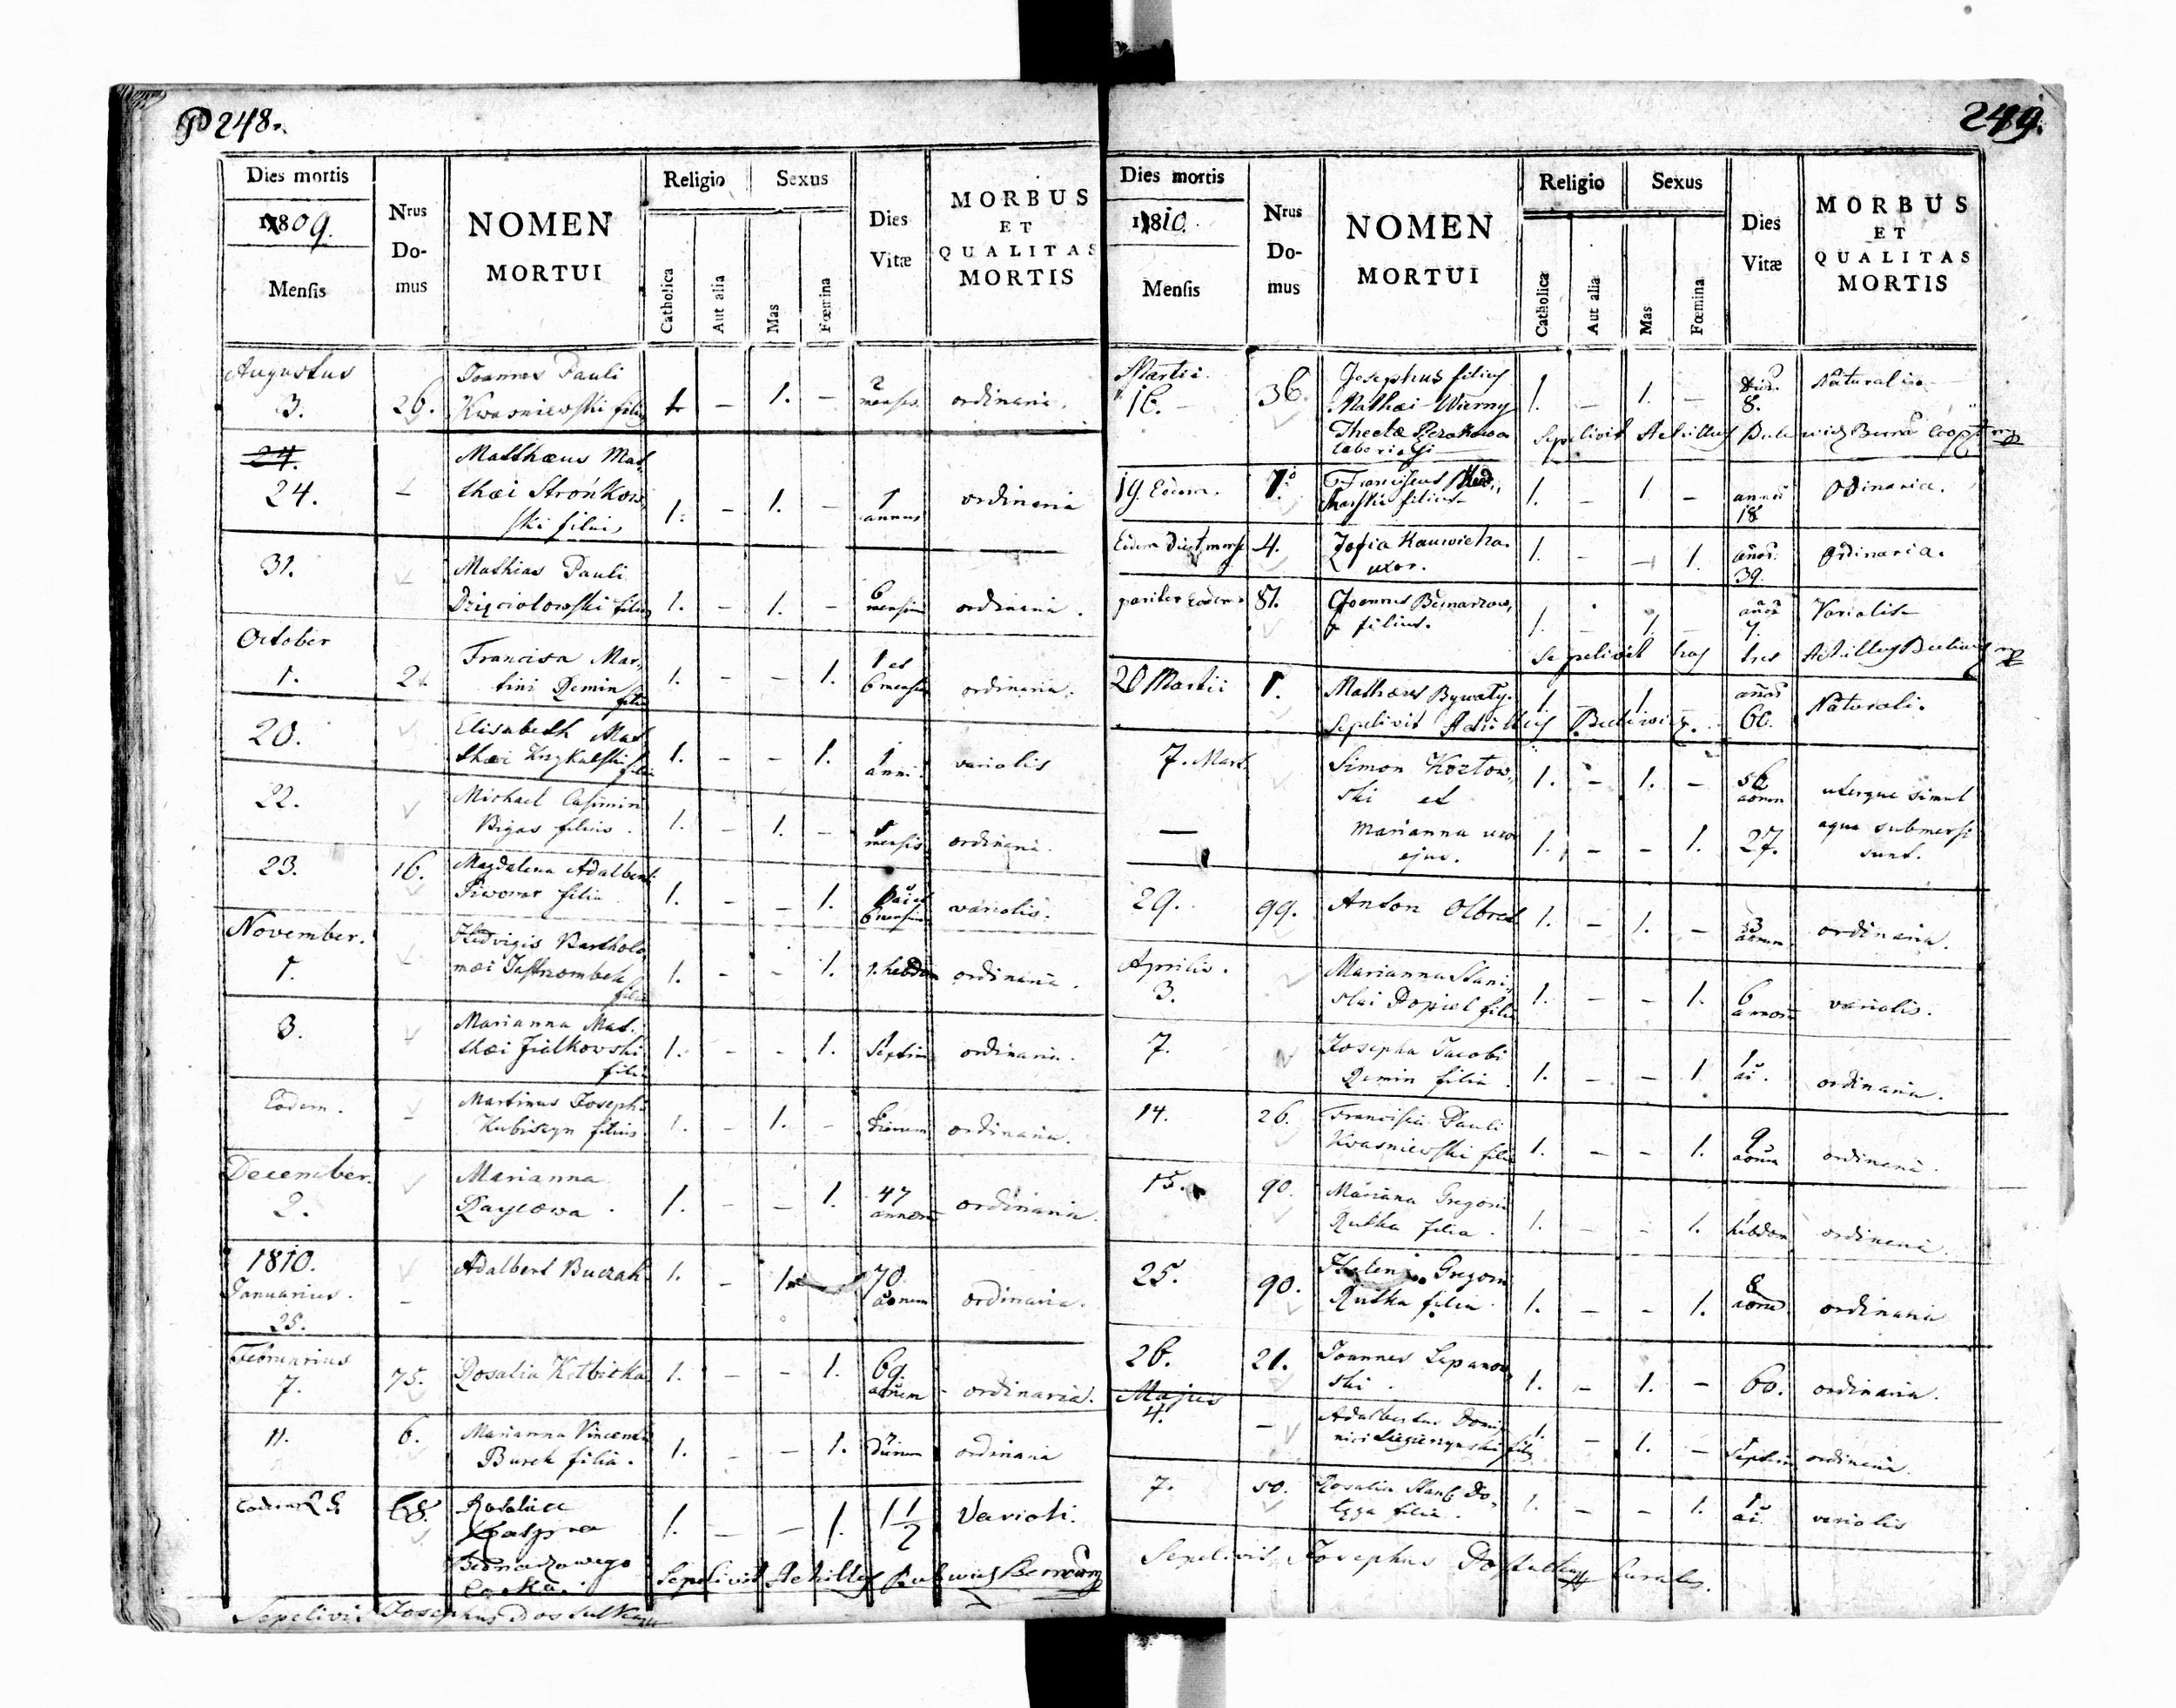 P 248.
Dies mortis
1809.
Mensis
Nrus Domus
NOMEN
MORTUI
Religio
Sexus
Catholica
Aut alia
Mas
Fœmina
Dies
Vitæ
MORBUS
ET
QUALITAS
MORTIS
Augustus
3. 26. Joannes Pauli
Kwasniewski filius 1. – 1. – 2 menses ordinaria.
24.
24. – Matthæus Mat-
thæi Strońkow-
ski filius 1. – 1. – 1 annus ordinaria
31. Mathias Pauli
Dzięciolowski filius 1. – 1. – 6 mensium ordinaria.
October
1. 2. Francisca Mar-
tini Demin filia 1. – – 1. 1 et 6 mensium ordinaria.
20. Elisabeth Mat-
thæi Krzykalski filia 1. – – 1. 1 anni. variolis
22. Michael Casimiri
Bigas filius. 1. – 1. – mensis ordinaria.
23. 16. Magdalena Adalberti
Piwowar filia 1. – – 1. 6 mensium variolis.
November.
1. Hedvigis Bartholo-
mæi Jastrzombek
filia 1. – – 1. 1. hebdom ordinaria.
3. Marianna Mat-
thæi Fialkowski
filia 1. – – 1. septim ordinaria.
Eodem. – Martinus Josephi
Kubiszyn filius 1. – 1. – dierum ordinaria.
December.
2. Marianna
Raycowa. 1. – – 1. 47 annorum ordinaria.
1810.
Januarius.
25. – Adalbert Buczak 1. – 1. 70 annorum ordinaria.
Februarius
7. 75. Rosalia Kelbicka 1. – – 1. 69. annorum ordinaria.
11. 6. Marianna Vincentii
Burek filia. 1. – – 1. dierum ordinaria
28. 68. Rosalia
Kaspra
Bednarzowego
Corka. 1. – – 1. 1 1/2 Varioli.
Sepelivit Achilles
Sepelivit Josephus
249.
Dies mortis
1810.
Mensis
Nrus Domus
NOMEN
MORTUI
Religio
Sexus
Catholica
Aut alia
Mas
Fœmina
Dies
Vitæ
MORBUS
ET
QUALITAS
MORTIS
Martii.
16. 36. Josephus filius
Mathæi Wierny
Theclæ 1. – 1. – 8. Naturalis
Sepelivit Achilles
19. Eodem. 7. Franciscus
filius 1. – 1 – annos 18 Ordinaria.
4. Zofia
uxor. 1. – – 1. annos. 39. Ordinaria.
pariter Eodem 81. Joannes Bednarzow-
filius. 1. – 1. – annos 7. Variolis
Sepelivit hos tres Achilles
20 Martii 1. Mathæus Bywaty. 1. 1. annos 60. Naturali.
Sepelivit Achilles
7. Mart. Simon Kozłow-
ski et 1. – 1. – 56 annorum uterque simul
— Marianna uxor
ejus. 1. – – 1. 27. aqua submersi
sunt.
29. 99. Anton Olbret 1. – 1. – 3 annorum ordinaria.
Aprilis.
3. Marianna Stani-
slai Popiel filia 1. – – 1. 6 annorum variolis.
7. Josepha Jacobi
Demin filia 1. – – 1 1 ordinaria.
14. 26. Francisca Pauli
Kwasniewski filia 1. – – 1. 9 annorum ordinaria.
15. 90. Mariana Gregorii
Rutka filia. 1. – – 1. hebdom ordinaria.
25. 90. Gregorii
Rutka filia. 1. – – 1. 8 annorum ordinaria
26. 21. Joannes Lepanow-
ski. 1. – 1. – 60. ordinaria.
Majus
4. – Adalbertus Domi-
nici filius 1. – 1. – septim ordinaria.
7. 50. Rosalia
filia. 1. – – 1. 1 variolis
Sepelivit Josephus